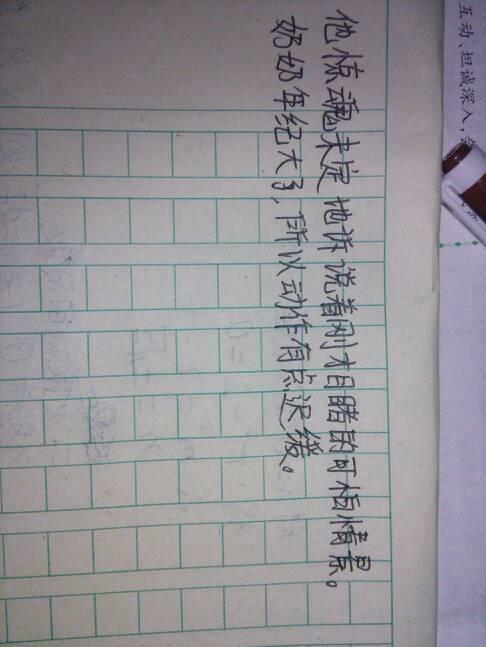 他惊魂未定地诉说着刚才目睹的可怕情景。
奶奶年纪大了,所以动作有点迟缓。
互动、坦诚深入,